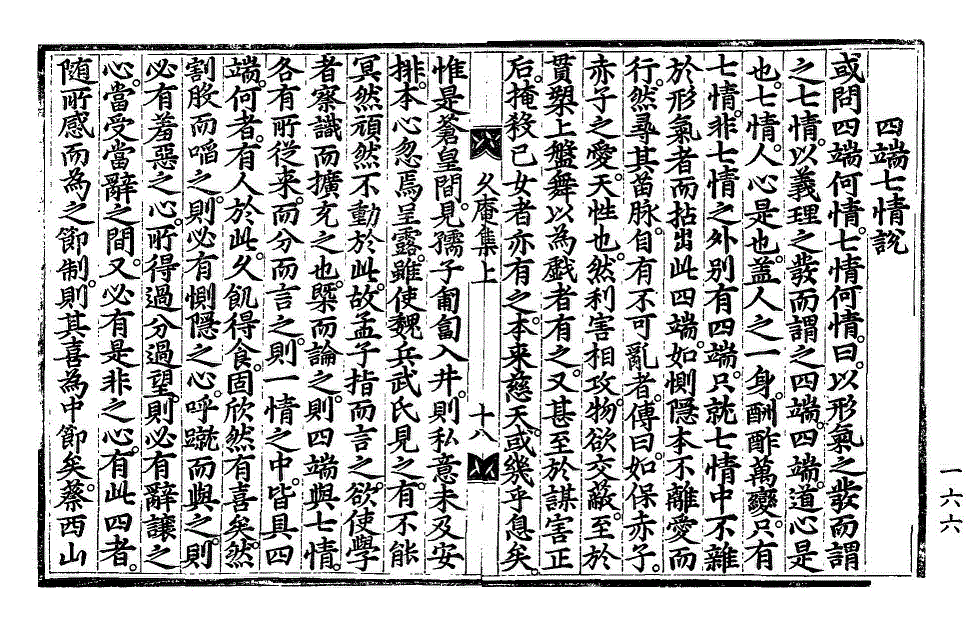 四端七情說
或問四端何情七情何情曰以形氣之發而謂
之七情以義理之發而謂之四端四端道心是
也七情人心是也蓋人之一身酬酢萬變只有
七情非七情之外別有四端只就七情中不雜
於形氣者而拈出此四端如惻隱本不離愛而
行然尋其苗脉自有不可亂者傳曰如保赤子
赤子之愛天性也然利害相攻物欲交蔽至於
貫槊上盤舞以爲戲者有之又甚至於謀害正
后掩殺己女者亦有之本來慈天或幾乎息矣
久庵集上 十八
惟是蒼皇間見孺子匍匐入井則私意未及安
排本心忽焉呈露雖使魏兵武氏見之有不能
冥然頑然不動於此故孟子指而言之欲使學
者察識而擴充之也槩而論之則四端與七情
各有所從來而分而言之則一情之中皆具四
端何者有人於此久飢得食固欣然有喜矣然
割股而啗之則必有惻隱之心呼蹴而與之則
必有羞惡之心所得過分過望則必有辭讓之
心當受當辭之間又必有是非之心有此四者
随所感而為之節制則其喜為中節矣蔡西山
一六六